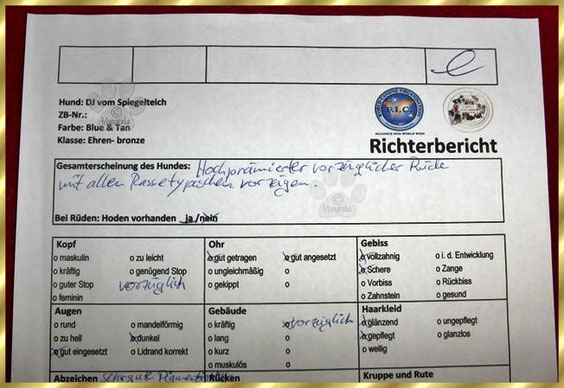 e
Hund: DJ vom Spiegelteich
ZB-Nr.:
Farbe: Blue & Tan
Klasse: Ehren- bronze
E.L.C.
ALLIANCE ZUM WORLD WIDE
Richterbericht
Gesamterscheinung des Hundes: Hochprämierter vorzüglicher Rüde
mit allen Rassetypischen vorzügen.
Bei Rüden: Hoden vorhanden ja /nein
Kopf
o maskulin o zu leicht
o kräftig o genügend Stop
o guter Stop vorzüglich
o feminin
Ohr
o gut getragen o gut angesetzt
o ungleichmäßig o
o gekippt o
Gebiss
o vollzahnig o i. d. Entwicklung
o Schere o Zange
o Vorbiss o Rückbiss
o Zahnstein o gesund
Augen
o rund o mandelförmig
o zu hell o dunkel
o gut eingesetzt o Lidrand korrekt
Gebäude
o kräftig o vorzüglich
o lang o
o kurz o
o muskulös o
Haarkleid
o glänzend o ungepflegt
o gepflegt o glanzlos
o wellig
Abzeichen sehr gute
Rücken
Kruppe und Rute
Manuela
Manuela